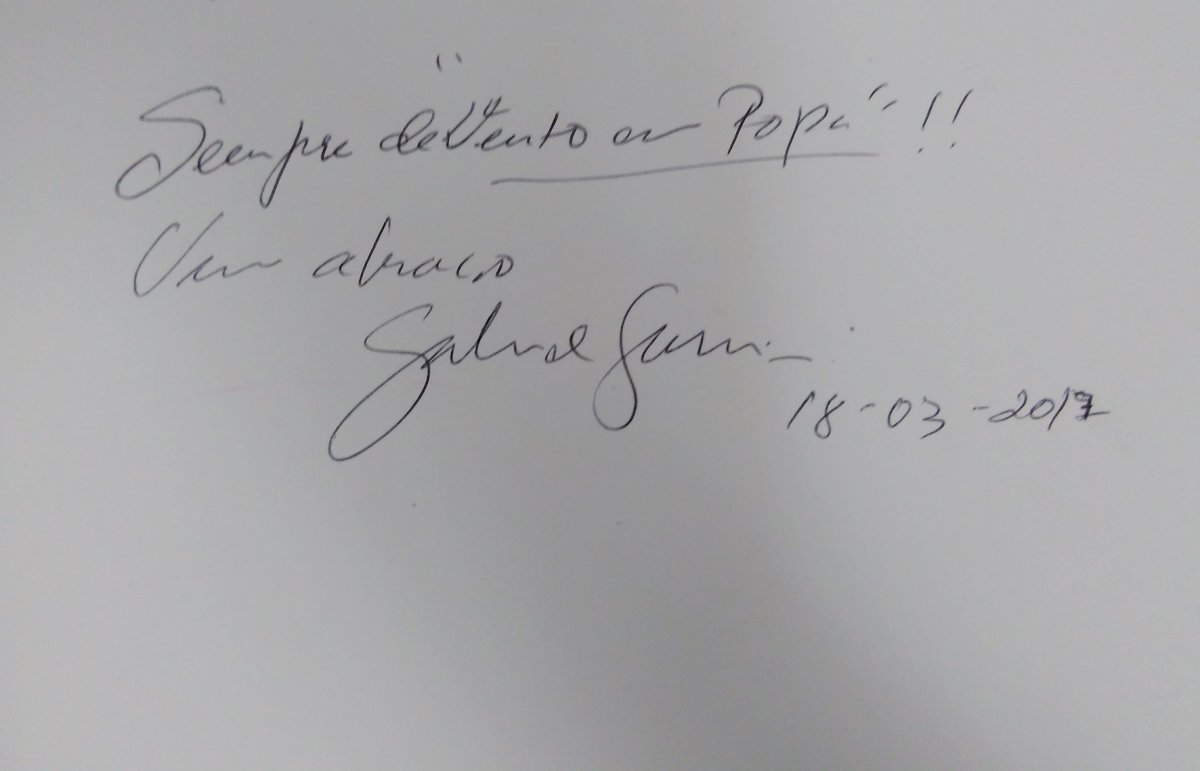 Sempre de "Vento em Popa" !!
Um abraço
Gabriel
18-03-2017